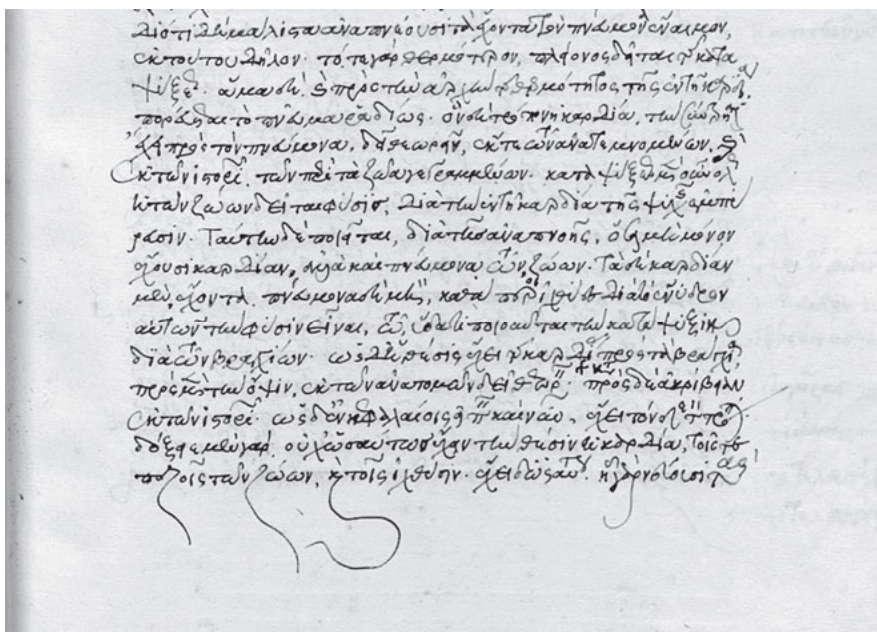 Διότι δὲ μάλιστα ἀναπνέουσι τὰ ἔχοντα τὸν πνεύμονα ἔναιμον,
ἐκ τούτου δῆλον· τό, τε γὰρ θερμότερον, πλείονος δεῖται τῆς κατα
ψύξεως· ἅμα δὲ καὶ πρὸς τὴν ἀρχὴν τῆς θερμότητος, τῆς ἐν τῇ καρδίᾳ
πορεύεται τὸ πνεῦμα ῥαδίως· ὃν δὲ τρόπον ἡ καρδία, τὴν σύντρησιν
ἔχει πρὸς τὸν πνεύμονα, δεῖ θεωρεῖν, ἔκ τε τῶν ἀνατεμνομένων, καὶ
ἐκ τῶν ἱστοριῶν, τῶν περὶ τὰ ζῶα γεγραμμένων· καταψύξεως μὲν οὖν ὅλως
ἡ τῶν ζώων δεῖται φύσις, διὰ τὴν ἐν τῇ καρδίᾳ τῆς ψυχῆς ἐμπύ
ρευσιν· ταύτην δὲ ποιεῖται, διὰ τῆς ἀναπνοῆς, ὅσα μὴ μόνον
ἔχουσι καρδίαν, ἀλλὰ καὶ πνεύμονα τῶν ζώων· τὰ δὲ καρδίαν
μὲν ἔχοντα, πνεύμονα δὲ μή, καθάπερ οἱ ἰχθύες διὰ τὸ ἔνυδρον
αὐτῶν τὴν φύσιν εἶναι, τῷ ὕδατι ποιοῦνται τὴν κατάψυξιν
διὰ τῶν βραγχίων· ὡς δ' ἡ θέσις ἔχει τῆς καρδίας πρὸς τὰ βράγχια,
πρὸς μὲν τὴν ὄψιν, ἐκ τῶν ἀνατομῶν δεῖ θεωρεῖν· πρὸς δὲ ἀκρίβειαν
ἐκ τῶν ἱστοριῶν· ὡς δ' ἐν κεφαλαίοις εἰπεῖν καὶ νῦν, ἔχει τόνδε τὸν τρόπον·
δόξειε μὲν γὰρ οὐχ ὡσαύτως ἔχειν τὴν θέσιν ἡ καρδία, τοῖς τε
πεζοῖς τῶν ζώων, καὶ τοῖς ἰχθύσιν· ἔχει δ' ὡσαύτως· ᾗ γὰρ νεύουσι τὰς